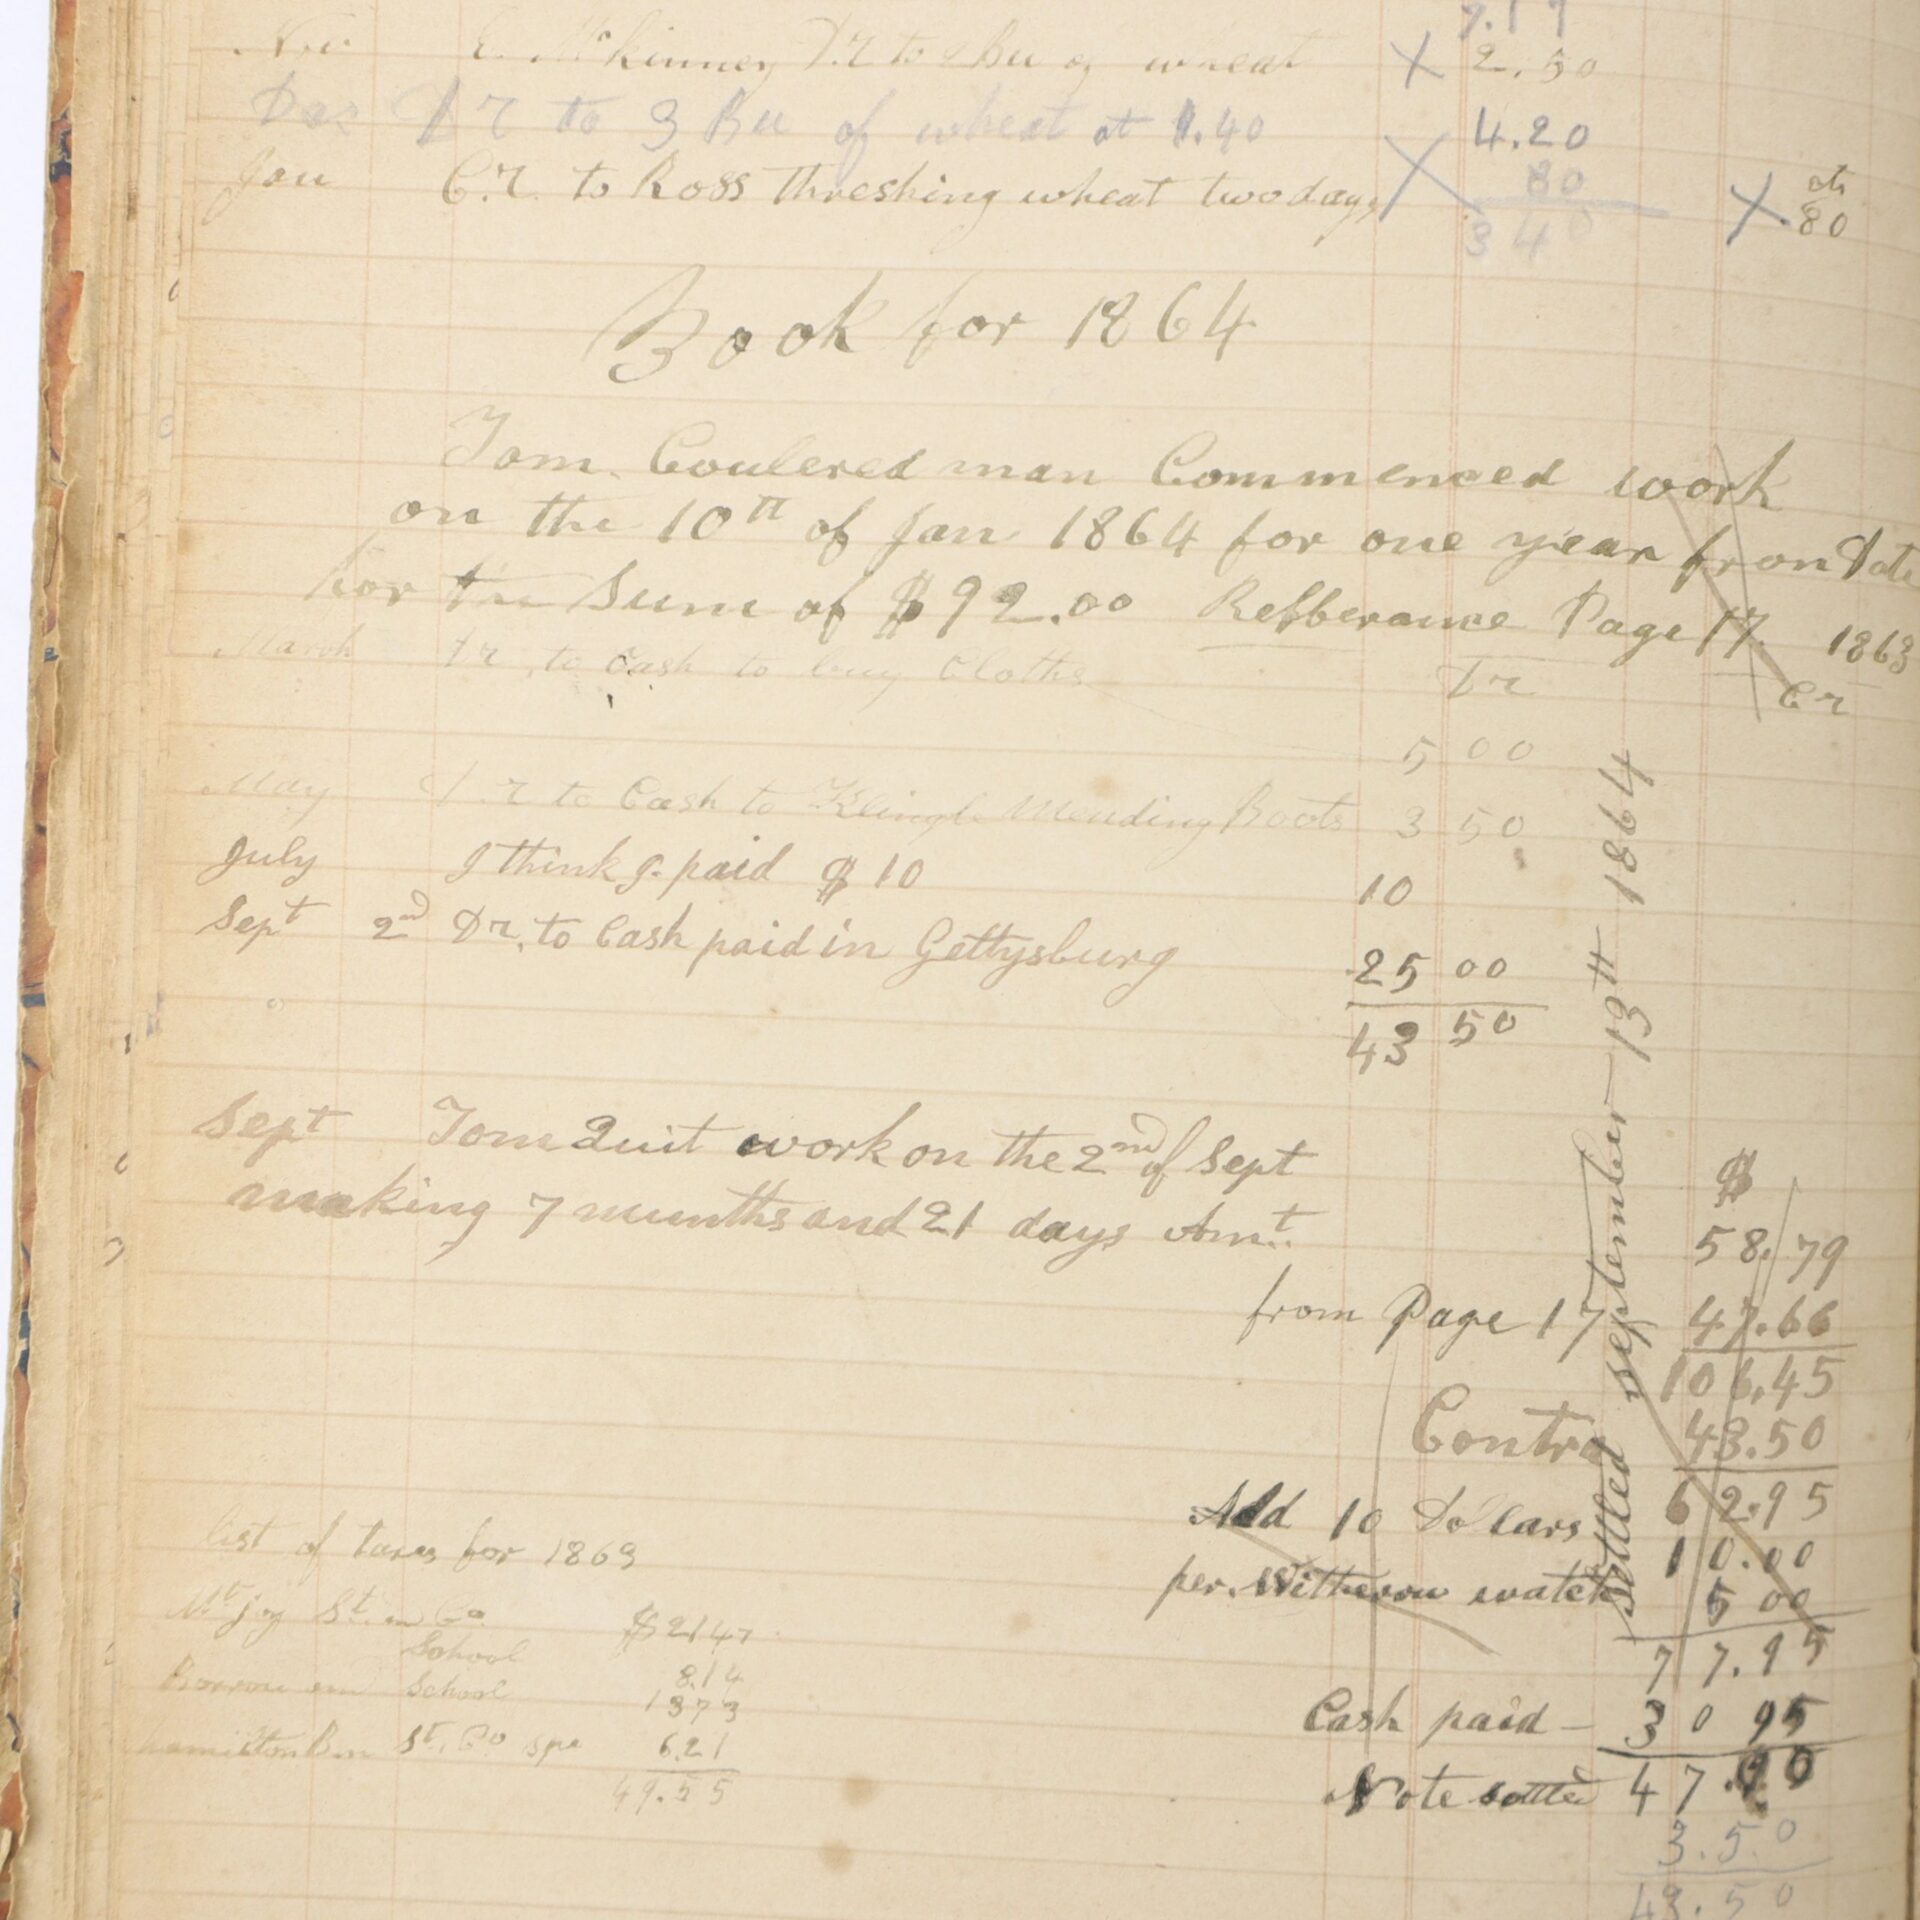 Nov E. McKinney Dr to Bu of wheat X 2.50
Dec Dr to 3 Bu of wheat at 1.40 4.20
Jan C.r. to Ross threshing wheat two days X 80 X cts 80
3 40
Book for 1864
Tom. Coulered man Commenced work
on the 10th of Jan 1864 for one year from Date
for the Sum of $92.00 Refberance Page 17. 1863
March Dr, to Cash to buy Cloths Dr Cr
5 00
May D.r to Cash to Klingle Mending Boots 3 50
July I think I paid $ 10 10
Sept 2nd Dr, to Cash paid in Gettysburg 25 00
" 43 50
Sept Tom Quit work on the 2nd of Sept
making 7 munths and 21 days Amt. $ 58.79
from Page 17 47.66
106.45
Contra 43.50
62.95
Add 10 Dollars 10.00
per. Witherow watch 5 00
77.95
Cash paid — 30 95
Note settled 47.00
3.50
43.50
settled September 13th 1864
list of taxes for 1863
Mt Joy St. an Co. $21 47
School 8.14
School 13 73
Hamilton Ban St. Co spe 6.21
49.55